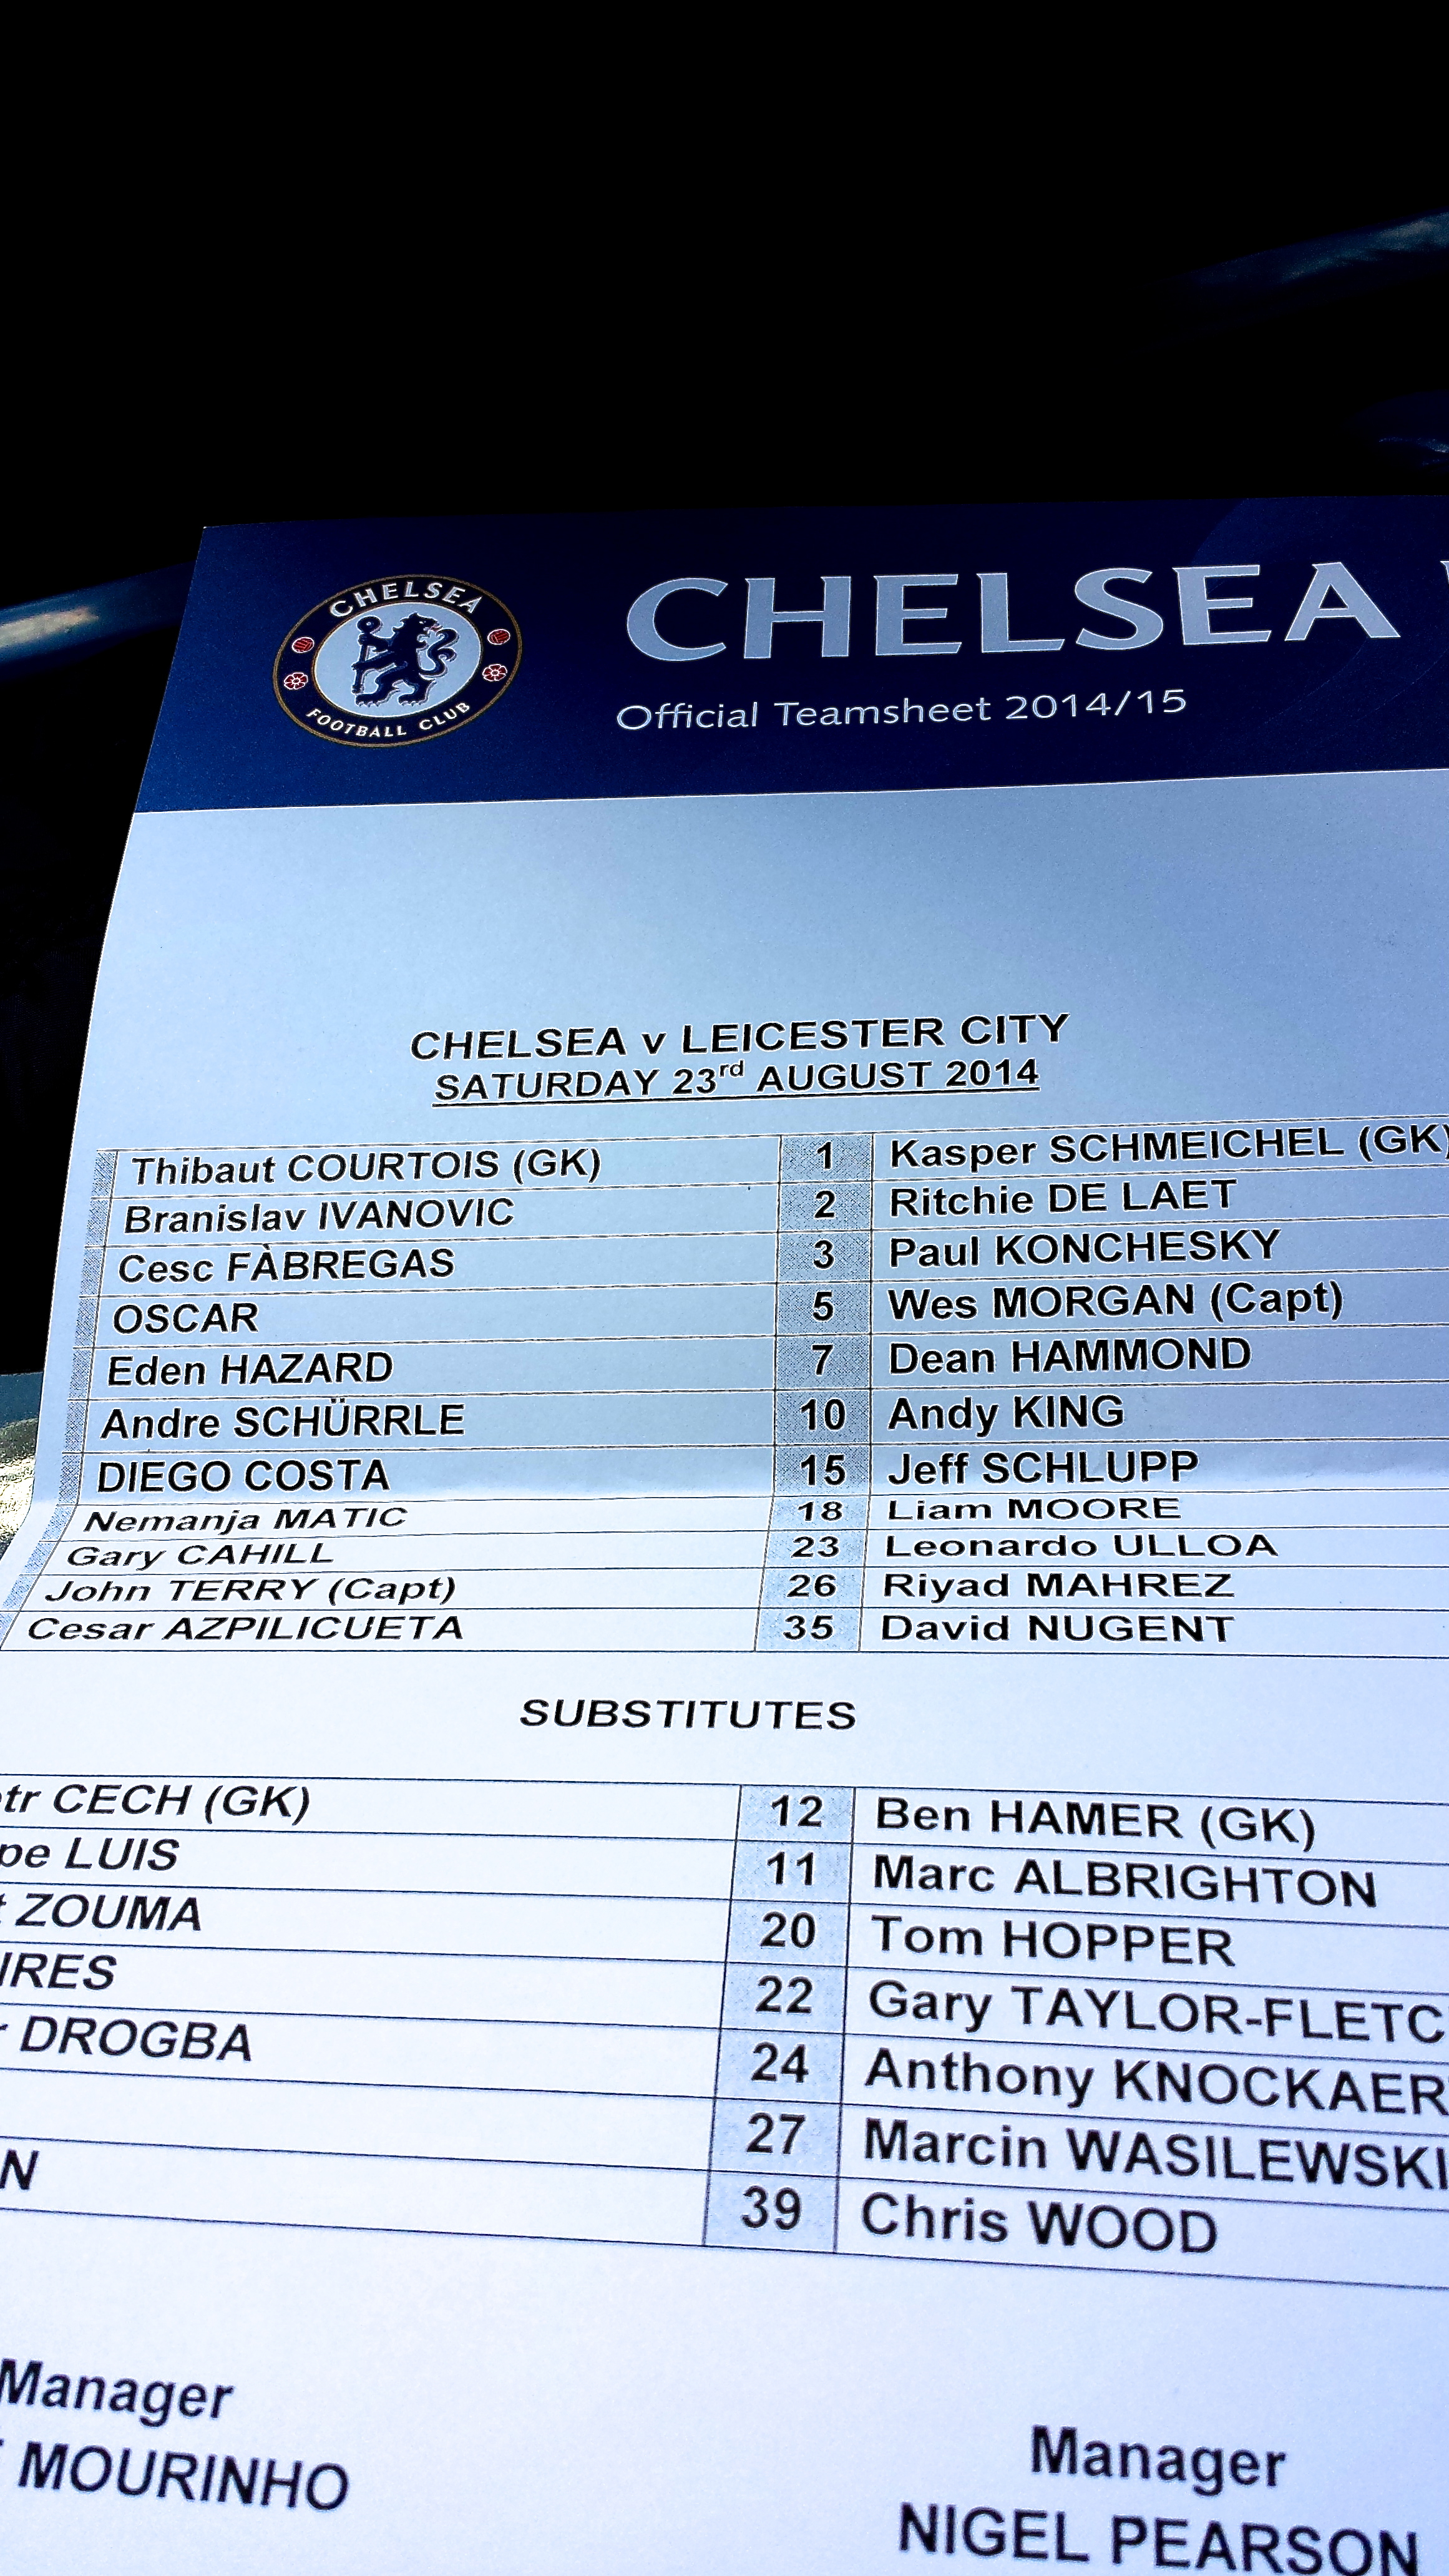 CHELSEA
FOOTBALL CLUB
CHELSEA
Official Teamsheet 2014/15
CHELSEA v LEICESTER CITY
SATURDAY 23rd AUGUST 2014
Thibaut COURTOIS (GK) 1 Kasper SCHMEICHEL (GK)
Branislav IVANOVIC 2 Ritchie DE LAET
Cesc FÀBREGAS 3 Paul KONCHESKY
OSCAR 5 Wes MORGAN (Capt)
Eden HAZARD 7 Dean HAMMOND
Andre SCHÜRRLE 10 Andy KING
DIEGO COSTA 15 Jeff SCHLUPP
Nemanja MATIC 18 Liam MOORE
Gary CAHILL 23 Leonardo ULLOA
John TERRY (Capt) 26 Riyad MAHREZ
Cesar AZPILICUETA 35 David NUGENT
SUBSTITUTES
tr CECH (GK) 12 Ben HAMER (GK)
pe LUIS 11 Marc ALBRIGHTON
ZOUMA 20 Tom HOPPER
IRES 22 Gary TAYLOR-FLETC
DROGBA 24 Anthony KNOCKAER
27 Marcin WASILEWSKI
N 39 Chris WOOD
Manager
MOURINHO
Manager
NIGEL PEARSON